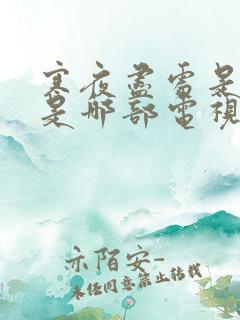 寒夜盡雷是
是那部電視
示陌安-
未经同意禁止转载